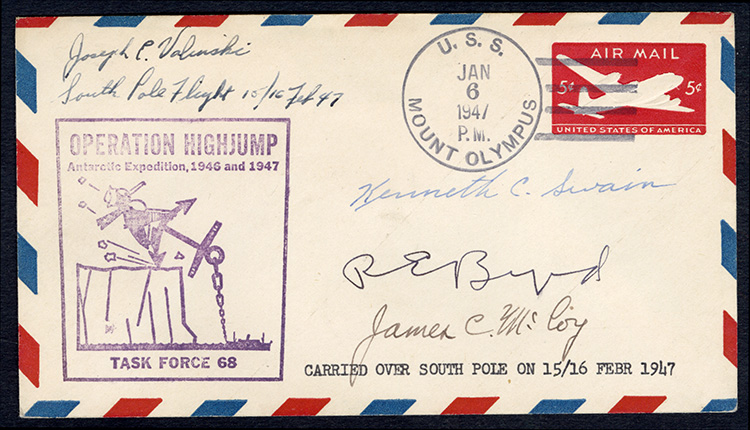 Joseph C. Valinski
South Pole Flight 15/16 Feb 47
U. S. S.
JAN
6
1947
P.M.
MOUNT OLYMPUS
AIR MAIL
5¢ 5¢
UNITED STATES OF AMERICA
OPERATION HIGHJUMP
Antarctic Expedition, 1946 and 1947
TASK FORCE 68
Kenneth C. Swain
R E Byrd
James C. McCoy
CARRIED OVER SOUTH POLE ON 15/16 FEBR 1947